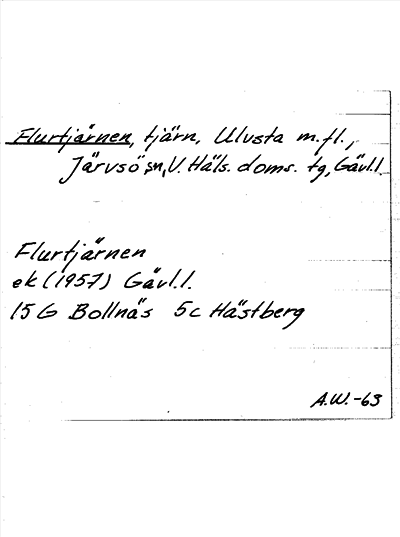 Flurtjärnen, tjärn, Ulvsta m.fl.,
Järvsö sn, V. Häls. doms. tg, Gävl.l.
Flurtjärnen
ek (1957) Gävl.l.
15G Bollnäs 5c Hästberg
A.W.-63